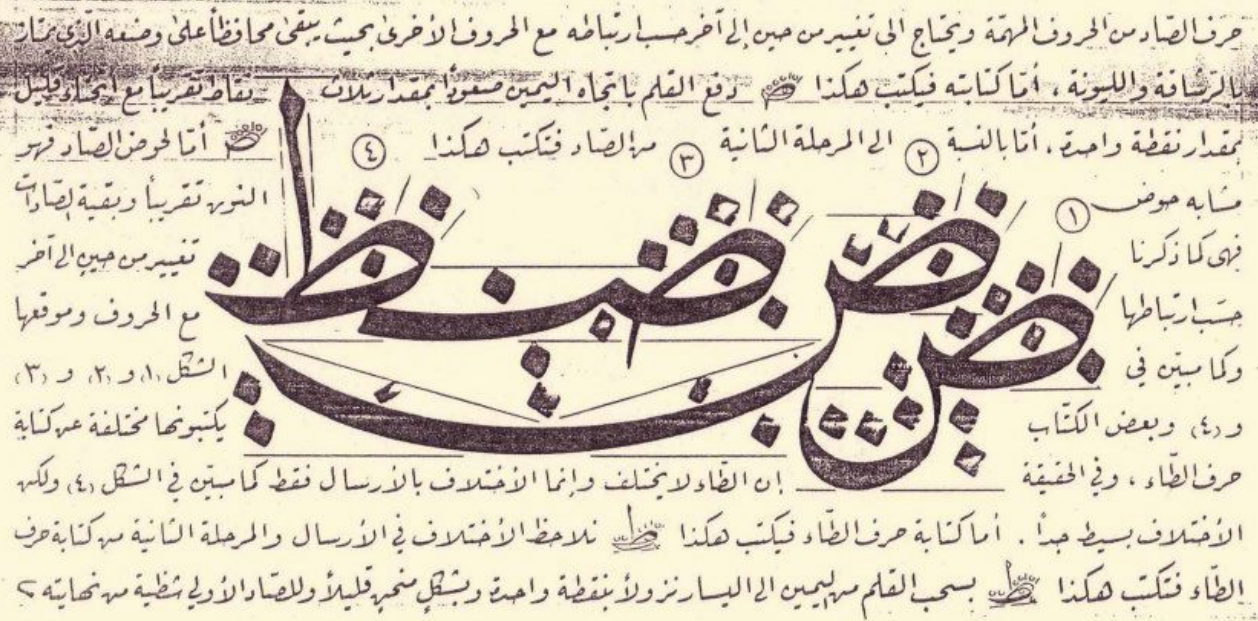 حرف الصّاد من الحروف المهمّة ويحتاج الى تغيير من حين إلى آخر حسب ارتباطه مع الحروف الأخرى بحيث يبقى محافظاً على وضعه الّذي يمتاز
بالرّشاقة والليونة ، أمّا كتابته فيكتب هكذا دفع القلم باتجاه اليمين صعوداً بمقدار ثلاث نقاط تقريباً مع انحناء قليل
بمقدار نقطة واحدة ، أمّا بالنسبة الى المرحلة الثانية من الصاد فتكتب هكذا أمّا لحوض الصّاد فهو
مشابه حوض النون تقريباً وبقية الصّادات
فهي كما ذكرنا تغيير من حين الى آخر
حسَب ارتباطها مع الحروف وموقعها
وكما مبيّن في الشكل (١) و (٢) و (٣)
و (٤) وبعض الكتّاب يكتبونها مختلفة عن كتابة
حرف الطّاء ، وفي الحقيقة إن الطّاء لا يختلف وإنما الأختلاف بالأرسال فقط كما مبيّن في الشكل (٤) ولكن
الأختلاف بسيط جداً . أما كتابة حرف الطّاء فيكتب هكذا نلاحظ الأختلاف في الأرسال والمرحلة الثانية من كتابة حرف
الطّاء فتكتب هكذا بسحب القلم من اليمين الى اليسار نزولاً بنقطة واحدة وبشكلٍ منحنٍ قليلاً وللصّاد الأولى شظية من نهايته ٢
١
٢
٣
٤